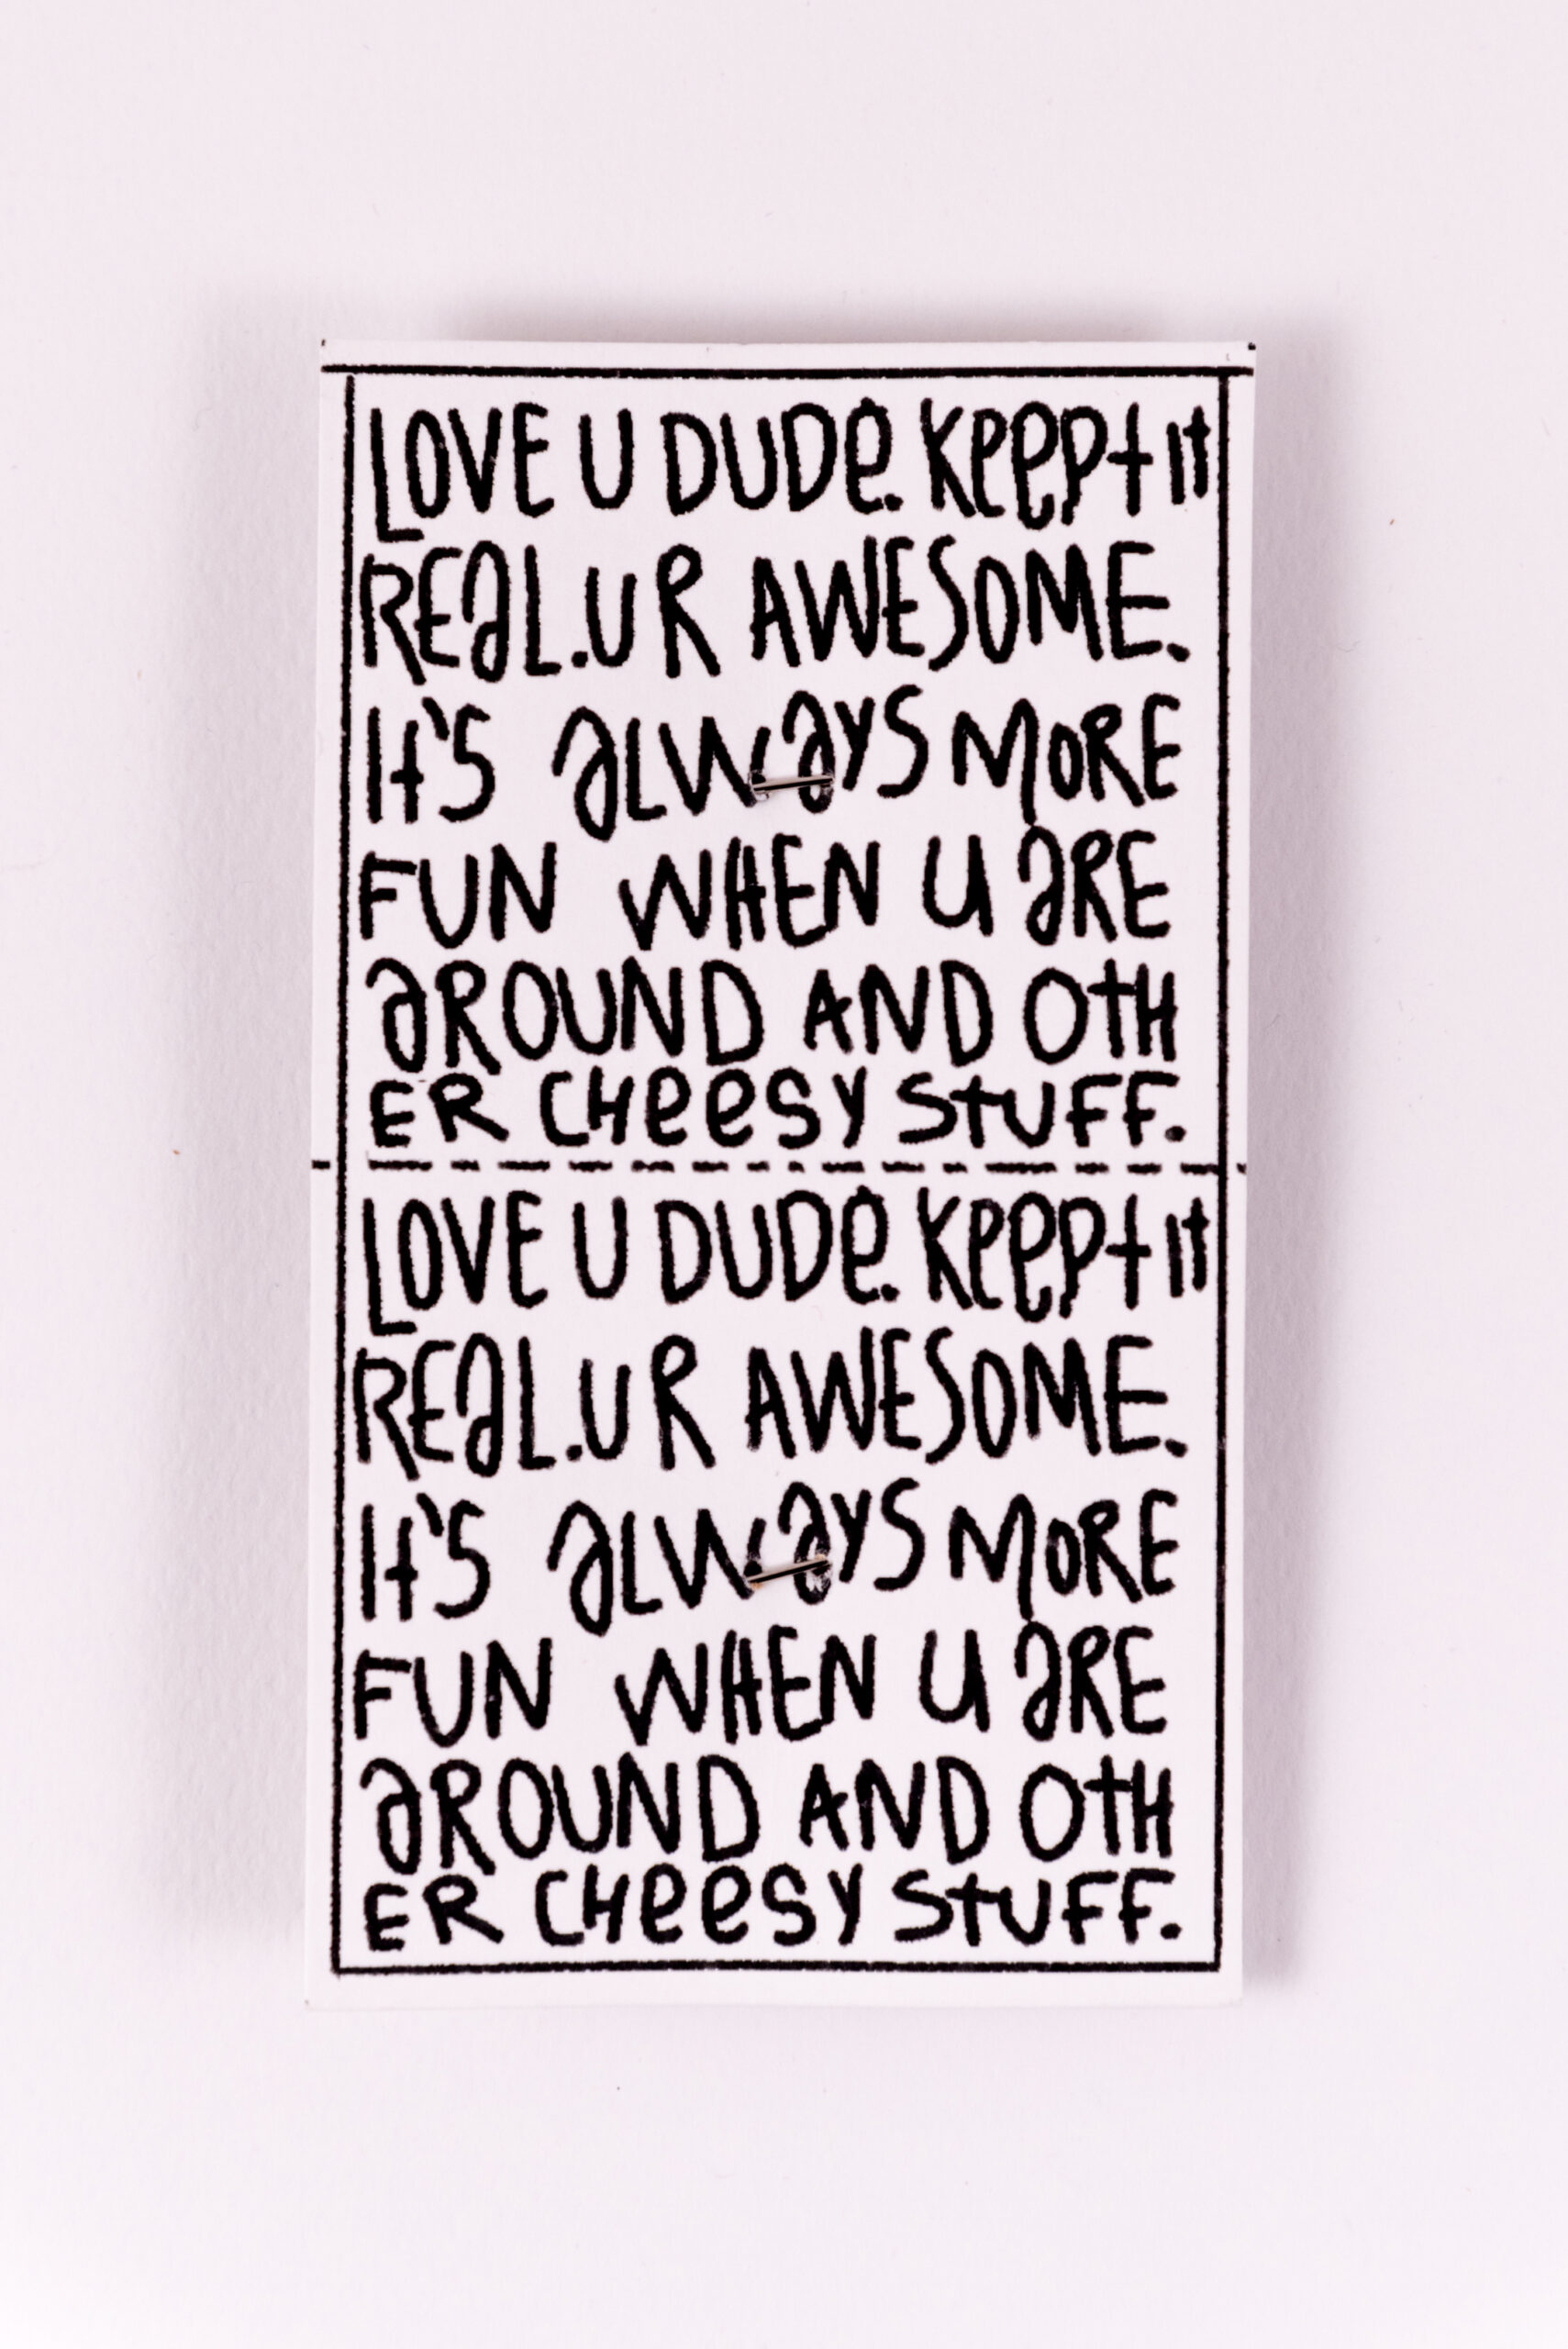 LOVE U DUDe. Keept it
REaL. UR AWESOME.
It'S aLWaYS MORE
FUN WHEN U aRE
aROUND AND OtH
ER CHeeSY StUFF.
LOVE U DUDe. Keept it
REaL. UR AWESOME.
It'S aLWaYS MORE
FUN WHEN U aRE
aROUND AND OtH
ER CHeeSY StUFF.